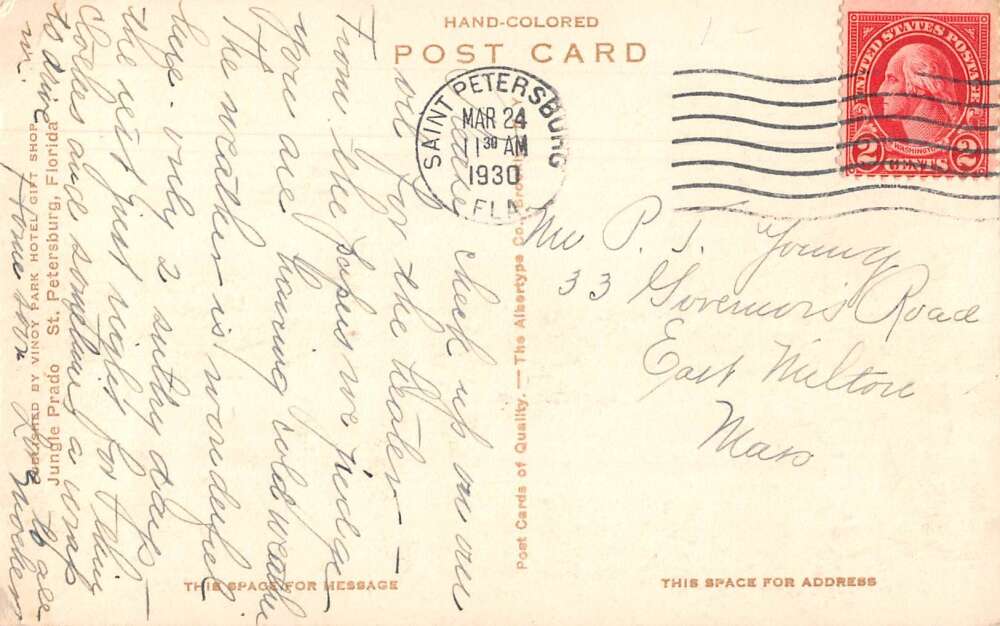 HAND-COLORED
POST CARD
SAINT PETERSBURG
MAR 24
11 30 AM
1930
FLA
UNITED STATES POSTAGE
WASHINGTON
2 CENTS 2
Mr P. T. Young
33 Governors Road
East Milton
Mass
check up on our
oil for the heater —
From the papers we judge
you are having cold weather
The weather is wonderful
here. only 2 sultry days —
the rest just right for thin
clothes and sometimes a wrap
to drive in.
Love to all
Home soon
Mother
Post Cards of Quality. — The Albertype Co., Brooklyn, N.Y.
PUBLISHED BY VINOY PARK HOTEL GIFT SHOP
Jungle Prado St. Petersburg, Florida
THIS SPACE FOR MESSAGE
THIS SPACE FOR ADDRESS